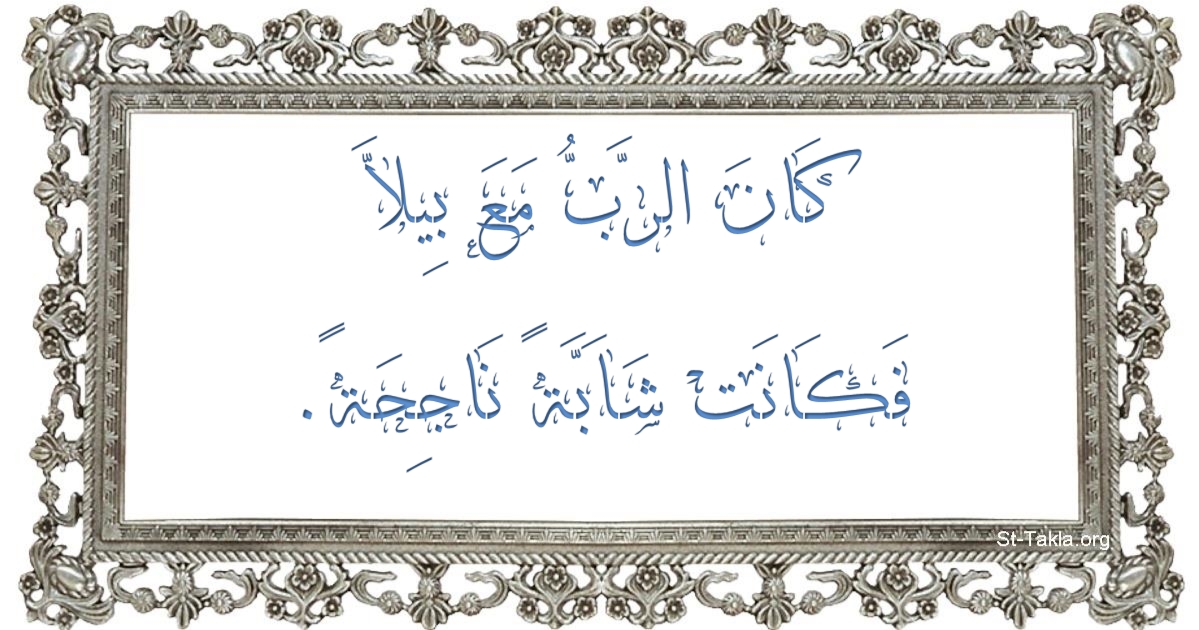 كَانَ الرَّبُّ مَعَ بِيلاَّ
فَكَانَت شَابَّةً نَاجِحَةً.
St-Takla.org